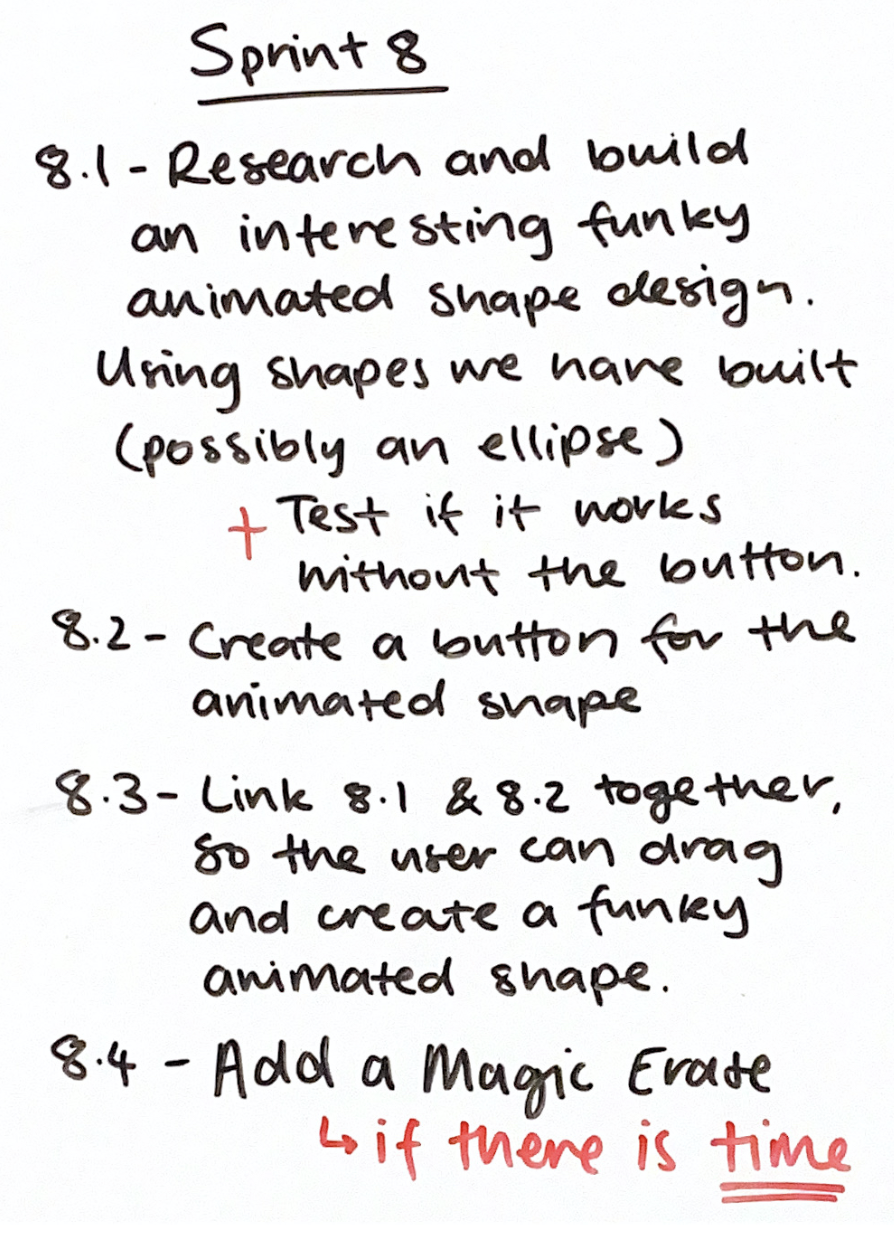 Sprint 8
8.1 - Research and build
an interesting funky
animated shape design.
Using shapes we have built
(possibly an ellipse)
+ Test if it works
without the button.
8.2 - Create a button for the
animated shape
8.3 - Link 8.1 & 8.2 together,
so the user can drag
and create a funky
animated shape.
8.4 - Add a Magic Erase
↳ if there is time